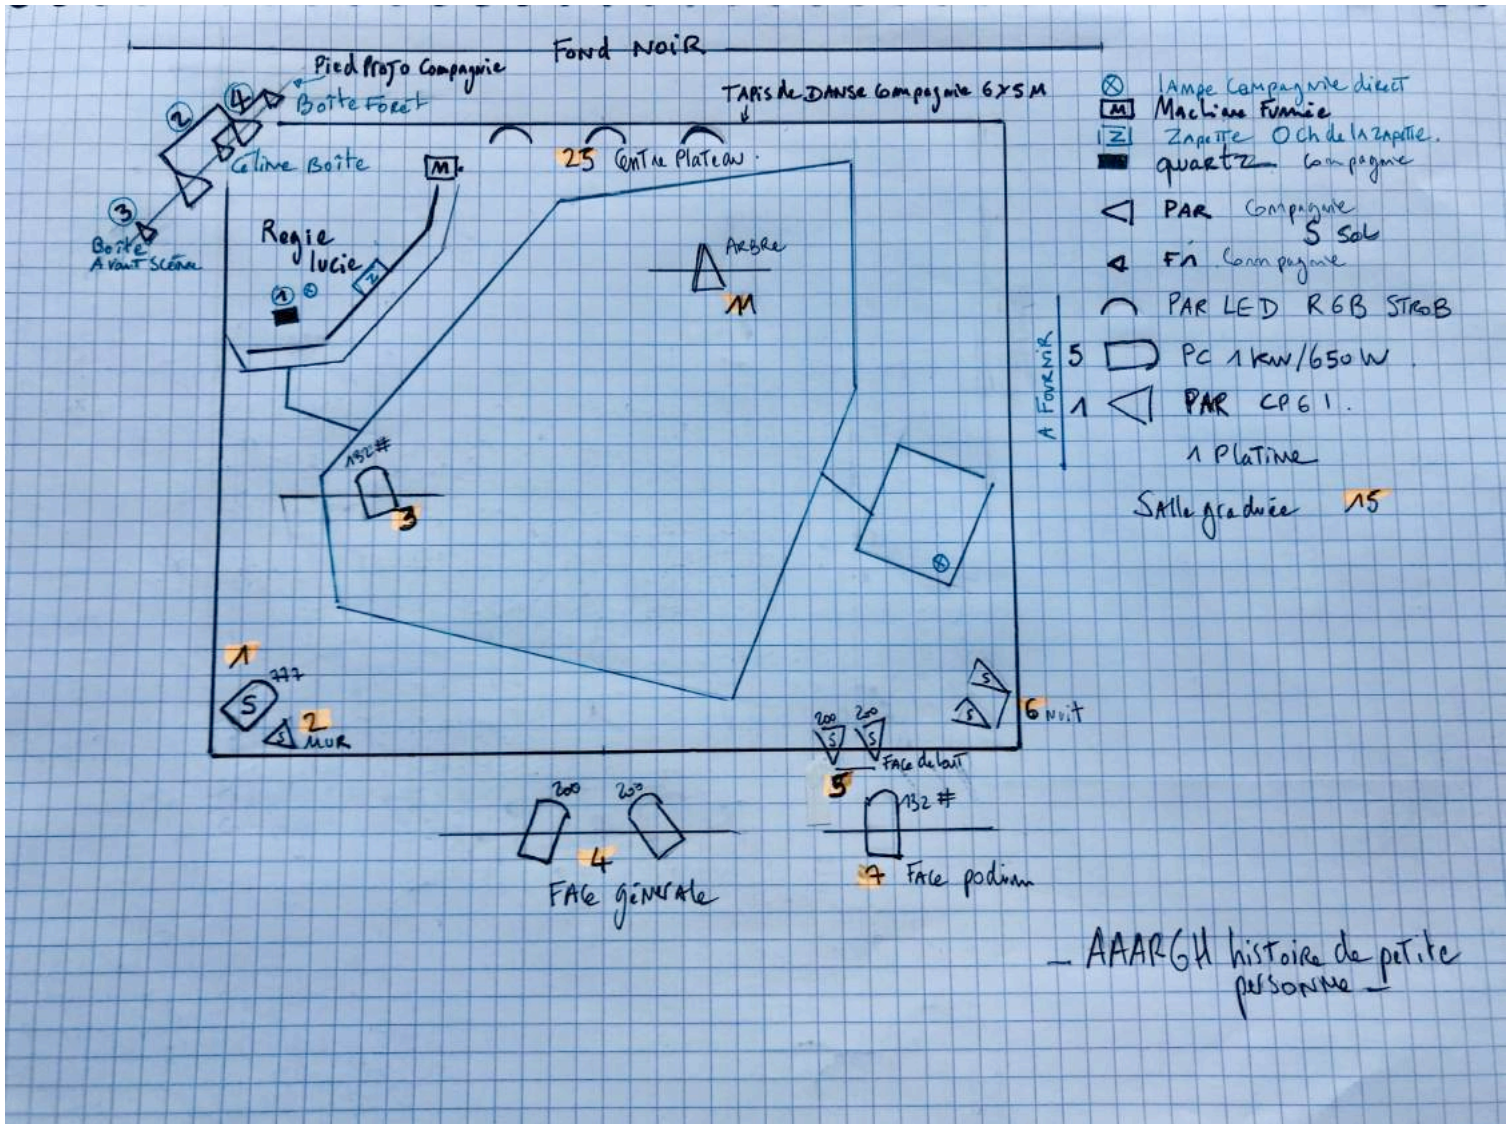 FOND NOIR
Pied Projo Compagnie
Boîte Forêt
4
2
Céline Boîte
3
Boîte
Avant Scène
TAPIS de DANSE Compagnie 6x5M
25 Centre Plateau.
M
Regie
lucie
Z
1
ARBRE
11
132#
3
1
777
S
2
S
MUR
200 200
S S
Face debout
5
S
S
6 Nuit
200 200
4
FACE GÉNÉRALE
132#
7 FACE podium
lampe Compagnie direct
M Machine Fumée
Z Zapette 0 Ch de la Zapette.
quartz Compagnie
PAR Compagnie
5 Sol
Compagnie
A FOURNIR
PAR LED RGB STROB
5 PC 1KW/650W.
1 PAR CP61.
1 Platine
Salle graduée 15
- AAARGH histoire de petite
personne -